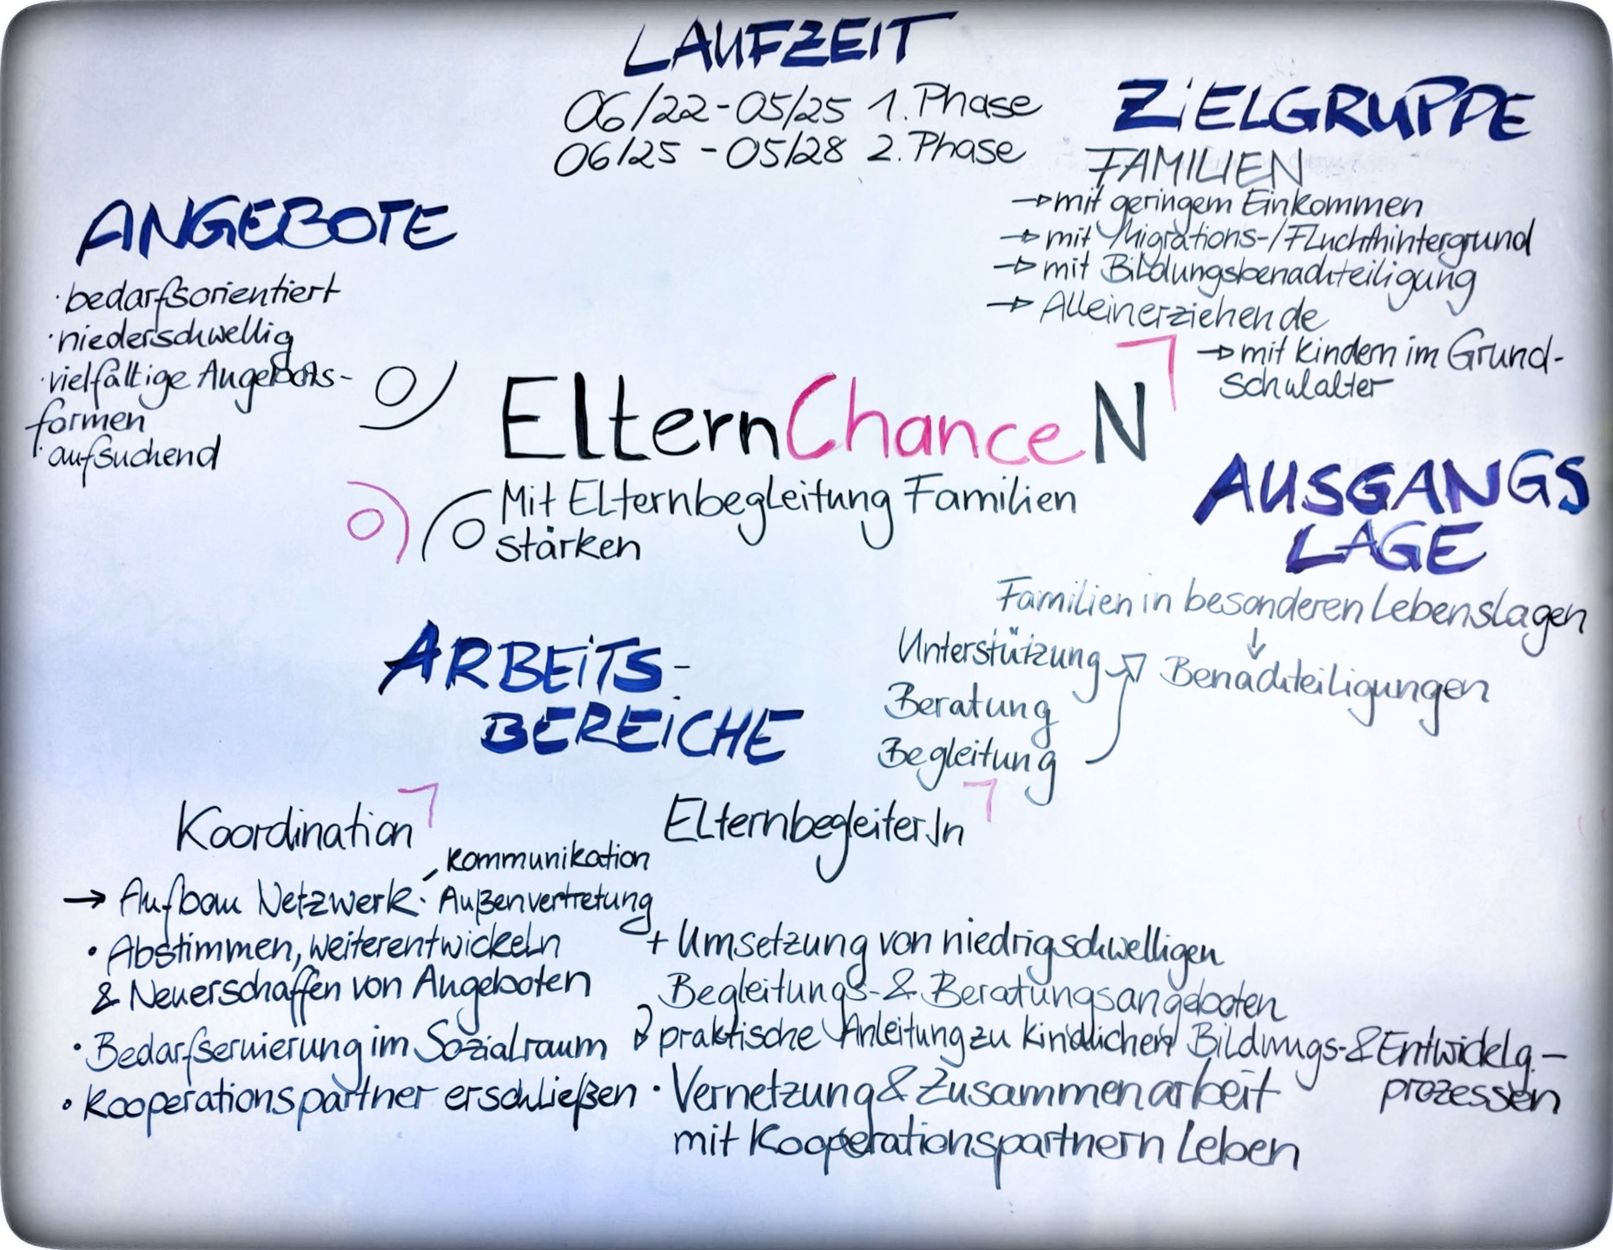 LAUFZEIT
06/22-05/25 1. Phase
06/25 - 05/28 2. Phase
ZIELGRUPPE
FAMILIEN
→ mit geringem Einkommen
→ mit Migrations-/Fluchthintergrund
→ mit Bildungsbenachteiligung
→ Alleinerziehende
→ mit Kindern im Grund-
schulalter
ANGEBOTE
· bedarfsorientiert
· niederschwellig
· vielfältige Angebots-
formen
· aufsuchend
ElternChanceN
Mit Elternbegleitung Familien
stärken
AUSGANGS
LAGE
Familien in besonderen Lebenslagen
↓
Unterstützung → Benachteiligungen
Beratung
Begleitung
ARBEITS-
BEREICHE
Koordination
→ Aufbau Netzwerk
Kommunikation
· Außenvertretung
· Abstimmen, weiterentwickeln
& Neuerschaffen von Angeboten
· Bedarfseruierung im Sozialraum
· Kooperationspartner erschließen
ElternbegleiterIn
+ Umsetzung von niedrigschwelligen
Begleitungs- & Beratungsangeboten
praktische Anleitung zu kindlichen Bildungs- & Entwicklg.-
prozessen
· Vernetzung & Zusammenarbeit
mit Kooperationspartnern Leben